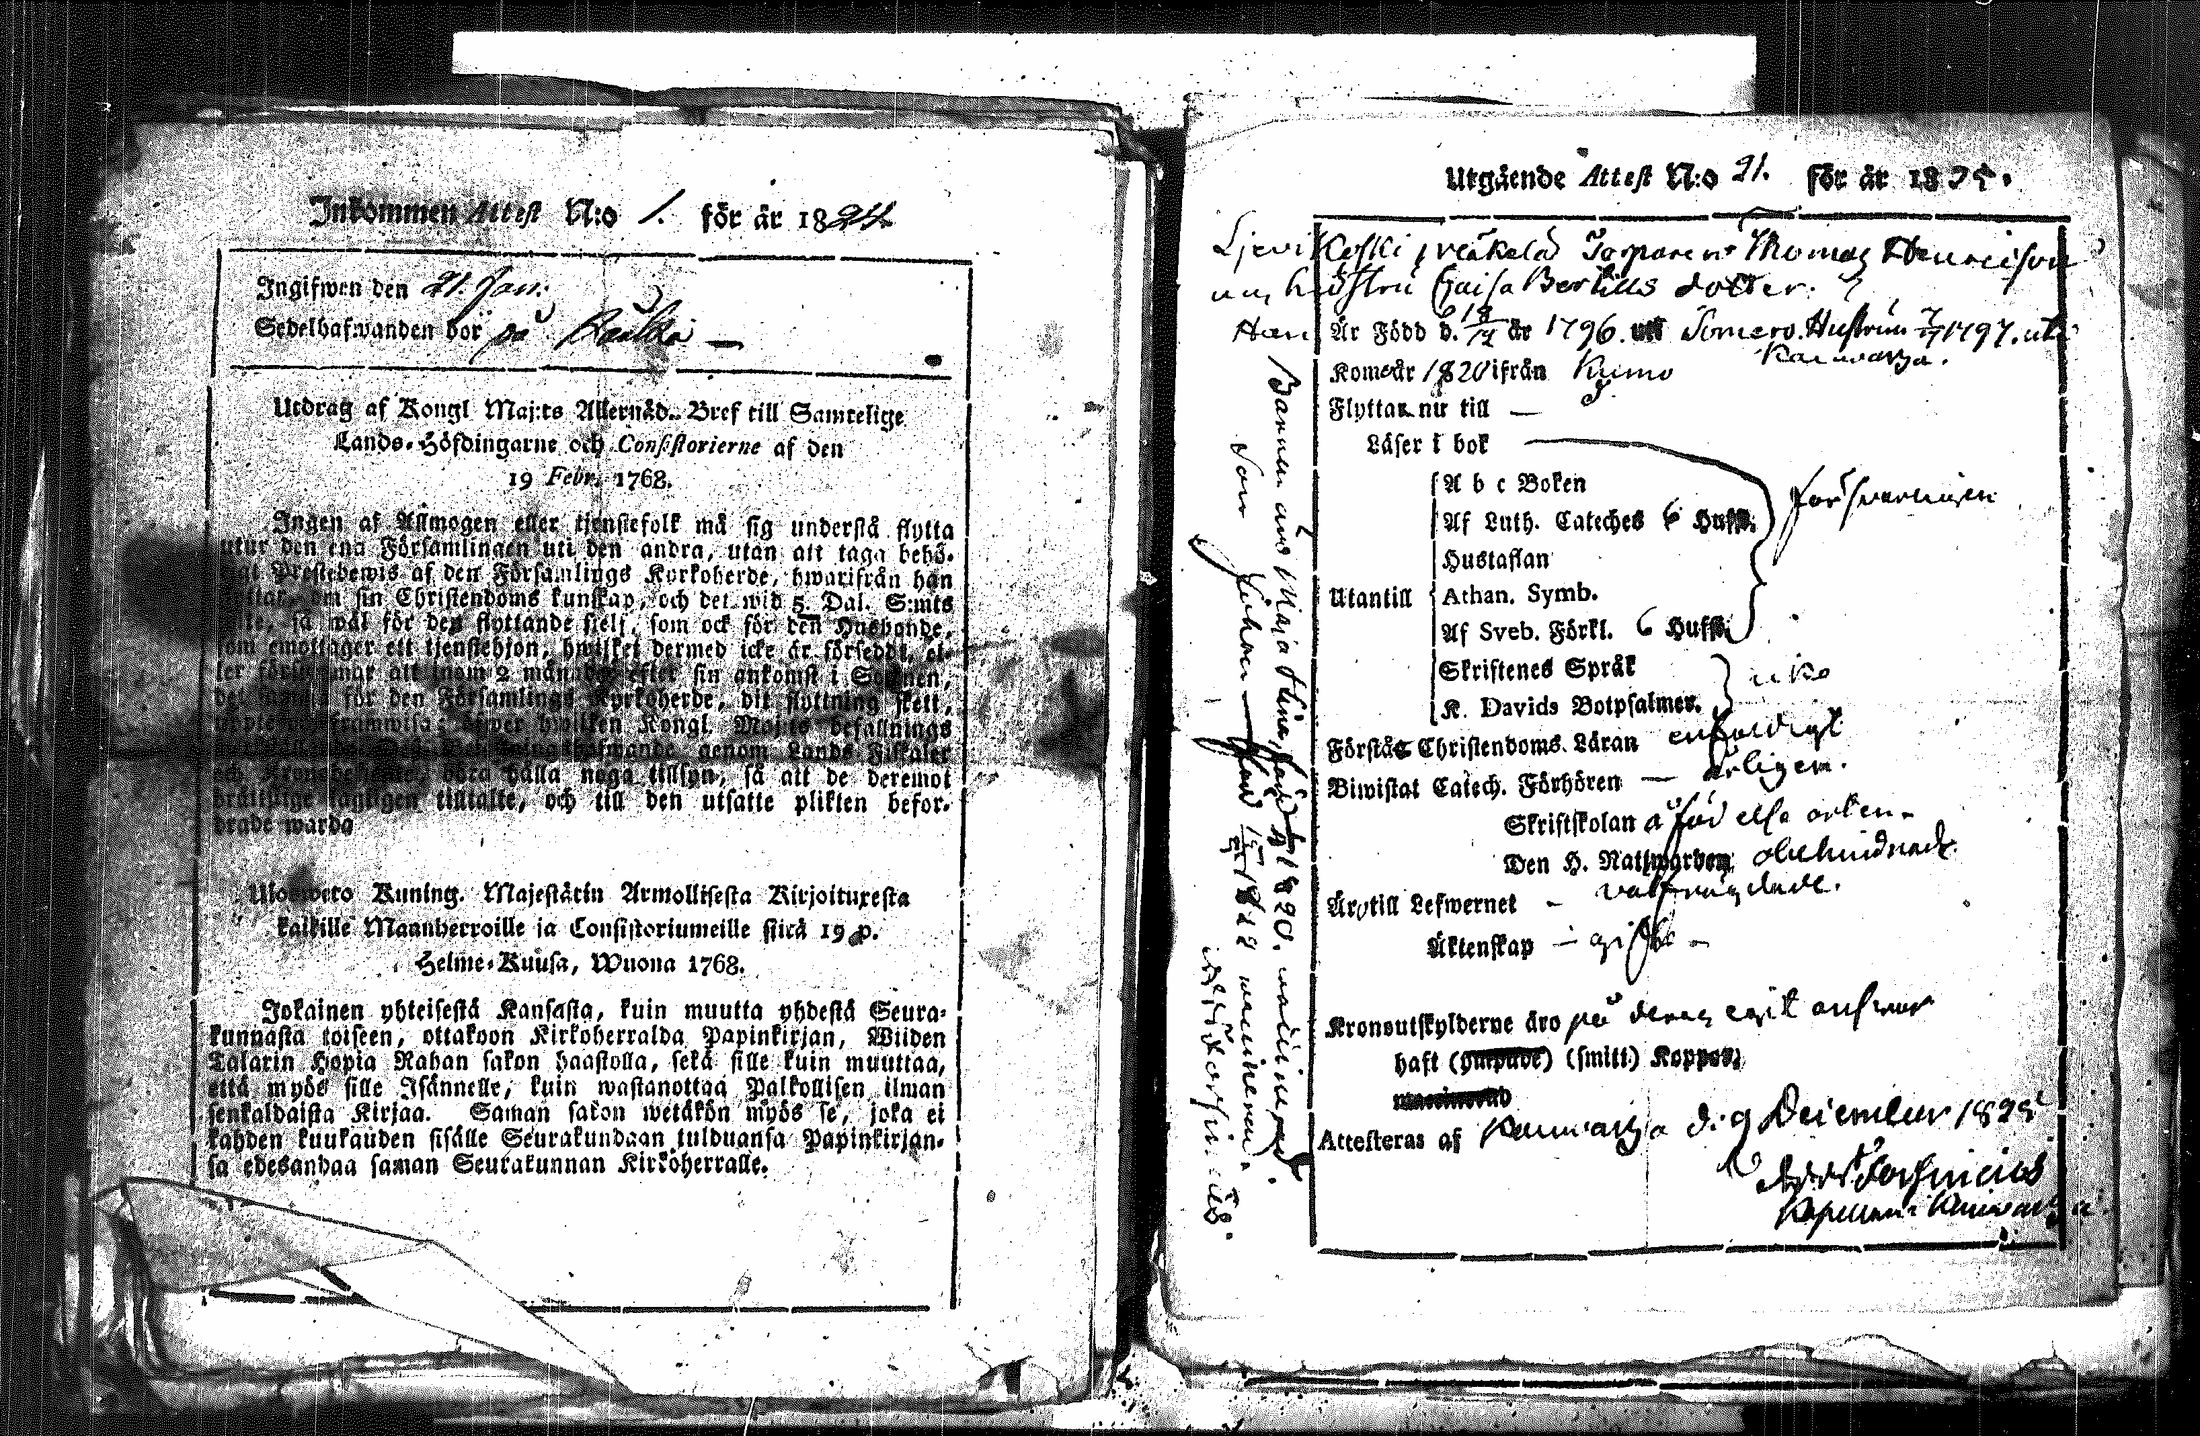 Inkommen Attest N:o 1. för år 1824
Ingifwen den 21. Jan:
Sedelhafwanden bor på
Utdrag af Kongl Maj:ts Allernåd. Bref till Samtelige
Lands-Höfdingarne och Consistorierne af den
19 Febr. 1768.
Ingen af Allmogen eller tjenstefolk må sig understå flytta
utur den ena Församlingen uti den andra, utan att taga behö-
Prestebewis af den Församlings Kyrkoherde, hwarifrån han
om sin Christendoms kunskap, och det wid 5. Dal. S:mts
så wäl för den flyttande sjelf, som ock för den Husbonde,
som emottager ett tjenstehjon, hwilket dermed icke är försedt, el-
ler försummar att inom 2 månader efter sin ankomst i Socknen,
det för den Församlings Kyrkoherde, dit flyttning skett,
framwisa; öfwer hwilken Kongl. Maj:ts befallnings
genom Lands Fiskaler
och böra hålla noga tillsyn, så att de deremot
bråttslige lagligen tilltalte, och till den utsatte plikten befor-
drade warda
Ulosweto Kuning. Majestätin Armollisesta Kirjoituxesta
kaikille Maanherroille ja Consistoriumeille siitä 19 p.
Helme-Kuusa, Wuona 1768.
Jokainen yhteisestä Kansasta, kuin muutta yhdestä Seura-
kunnasta toiseen, ottakoon Kirkoherralda Papinkirjan, Wiiden
Talarin Hopia Rahan sakon haastolla, sekä sille kuin muuttaa,
että myös sille Isännelle, kuin wastanottaa Palkollisen ilman
senkaldaista Kirjaa. Saman sakon wetäkön myös se, joka ei
kahden kuukauden sisälle Seurakundaan tulduansa Papinkirjan-
sa edesandaa saman Seurakunnan Kirkoherralle.
Utgående Attest N:o 21. för år 1825.
Torparen Thomas Henricsson
hustru Caisa Bertills dotter.
Är Född d. år 1796. uti Somero. Hustrun 1797. uti
Kauwatza.
Kom år 1820 ifrån Kumo
Flyttar nu till —
Läser i bok
A b c Boken
försvarligen
Af Luth. Cateches 6 Hufst.
Hustaflan
Utantill
Athan. Symb.
Af Sveb. Förkl. 6 Hufst.
Skriftenes Språk
icke
K. Davids Botpsalmer.
Förstår Christendoms Läran enfaldigt
Biwistat Catech. Förhören — årligen.
Skriftskolan å födelse orten.
Den H. Nattwarden obehindrade.
Äro till Lefwernet - välfrägdade.
Äktenskap — gifte -
Kronoutskylderne äro på deras egit answar
haft (smitt) Koppor,
Attesteras af Kauwatza d. 9 December 1825
Kapellan i Kauwatza.
Barnen äro Maja Stina, född 1820.
Son Johan född 1822